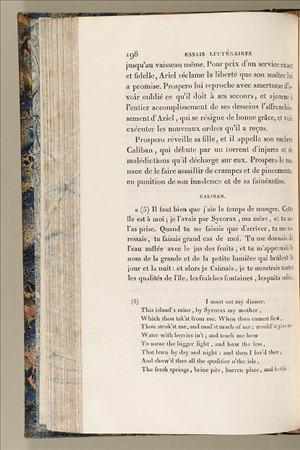 198 ESSAIS LITTÉRAIRES
jusqu'au vaisseau même. Pour prix d'un service exact
et fidelle, Ariel réclame la liberté que son maître lui
a promise. Prospero lui reproche avec amertume d'a-
voir oublié ce qu'il doit à ses secours, et ajourne à
l'entier accomplissement de ses desseins l'affranchis-
sement d'Ariel, qui se résigne de bonne grâce, et voit
exécuter les nouveaux ordres qu'il a reçus.
Prospero réveille sa fille, et il appelle son esclave
Caliban, qui débute par un torrent d'injures et de
malédictions qu'il décharge sur eux. Prospero le me-
nace de le faire assaillir de crampes et de pincements
en punition de son insolence et de sa fainéantise.
CALIBAN.
« (5) Il faut bien que j'aie le temps de manger. Cette
île est à moi ; je l'avais par Sycorax, ma mère, et tu me
l'as prise. Quand tu ne faisais que d'arriver, tu me ca-
ressais, tu faisais grand cas de moi. Tu me donnais de
l'eau mêlée avec le jus des fruits, et tu m'apprenais le
nom de la grande et de la petite lumière qui brûlent le
jour et la nuit : et alors je t'aimais, je te montrais toutes
les qualités de l'île, les fraîches fontaines, les puits salés,
(5) I must eat my dinner.
This island's mine, by Sycorax my mother,
Which thou tak'st from me. When thou camest first,
Thou strok'st me, and mad'st much of me ; would'st give me
Water with berries in't ; and teach me how
To name the bigger light, and how the less,
That burn by day and night : and then I lov'd thee,
And show'd thee all the qualities o'the isle,
The fresh springs, brine pits, barren place, and fertile